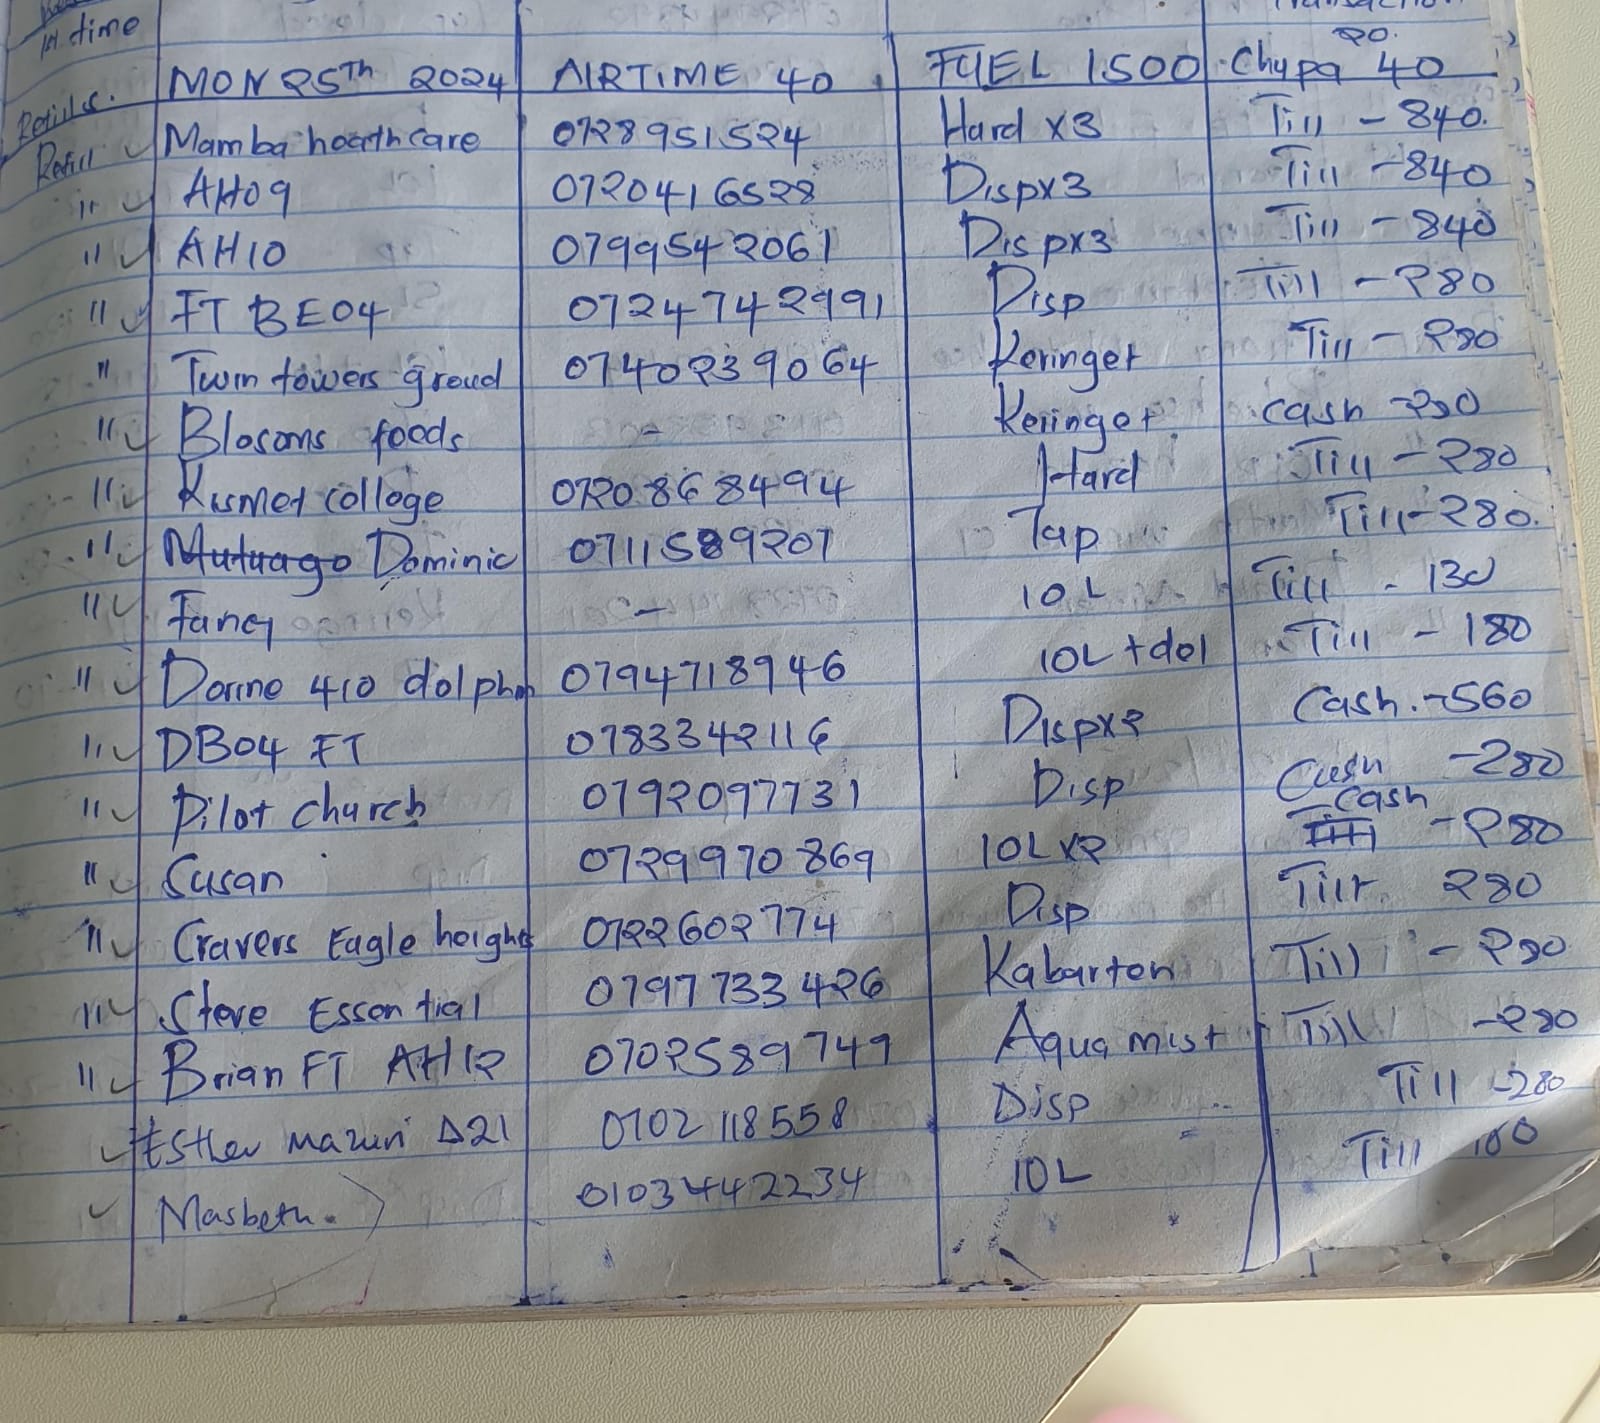 1st time
20.
Refills. MON 25TH 2024 AIRTIME 40 FUEL 1500 Chupa 40
Refill Mamba heathcare 0728951524 Hard x3 Till - 840.
" AH09 0720416528 Dispx3 Till - 840
" AH10 0799542061 Dispx3 Till - 840
" FT BE04 0724742991 Disp Till - 280
" Twin towers groud 0740239064 Keringet Till - 280
" Blosoms foods - Keringet Cash - 280
" Kismet college 0720868494 Hard Till - 280
" Mutuago Dominic 0711589207 Tap Till - 280.
" Fancy - 10L Till - 130
" Dorine 410 dolphin 0794718946 10L + dol Till - 180
" DB04 FT 0783342116 Dispx2 Cash. - 560
" Pilot church 0792097731 Disp Cash - 280
" Susan 0729970869 10Lx2 Cash - 280
" Cravers Eagle heights 0722602774 Disp Till 280
" Steve Essential 0797733426 Kabarton Till - 280
" Brian FT AH12 0702589749 Aqua mist Till - 280
Esther mazuri A21 0702118558 Disp Till - 280
Masbeth. 0103442234 10L Till